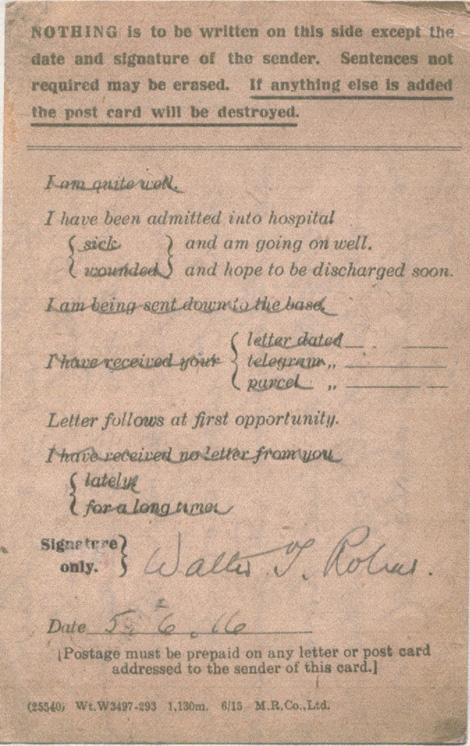 NOTHING is to be written on this side except the
date and signature of the sender. Sentences not
required may be erased. If anything else is added
the post card will be destroyed.
I am quite well.
I have been admitted into hospital
{ sick } and am going on well.
{ wounded } and hope to be discharged soon.
I am being sent down to the base
I have received your { letter dated
telegram ,,
parcel ,,
Letter follows at first opportunity.
I have received no letter from you
{ lately
{ for a long time.
Signature only. } Walter T.
Date 5. 6. 16
[Postage must be prepaid on any letter or post card
addressed to the sender of this card.]
(25540) Wt.W3497-293 1,130m. 6/15 M.R.Co.,Ltd.